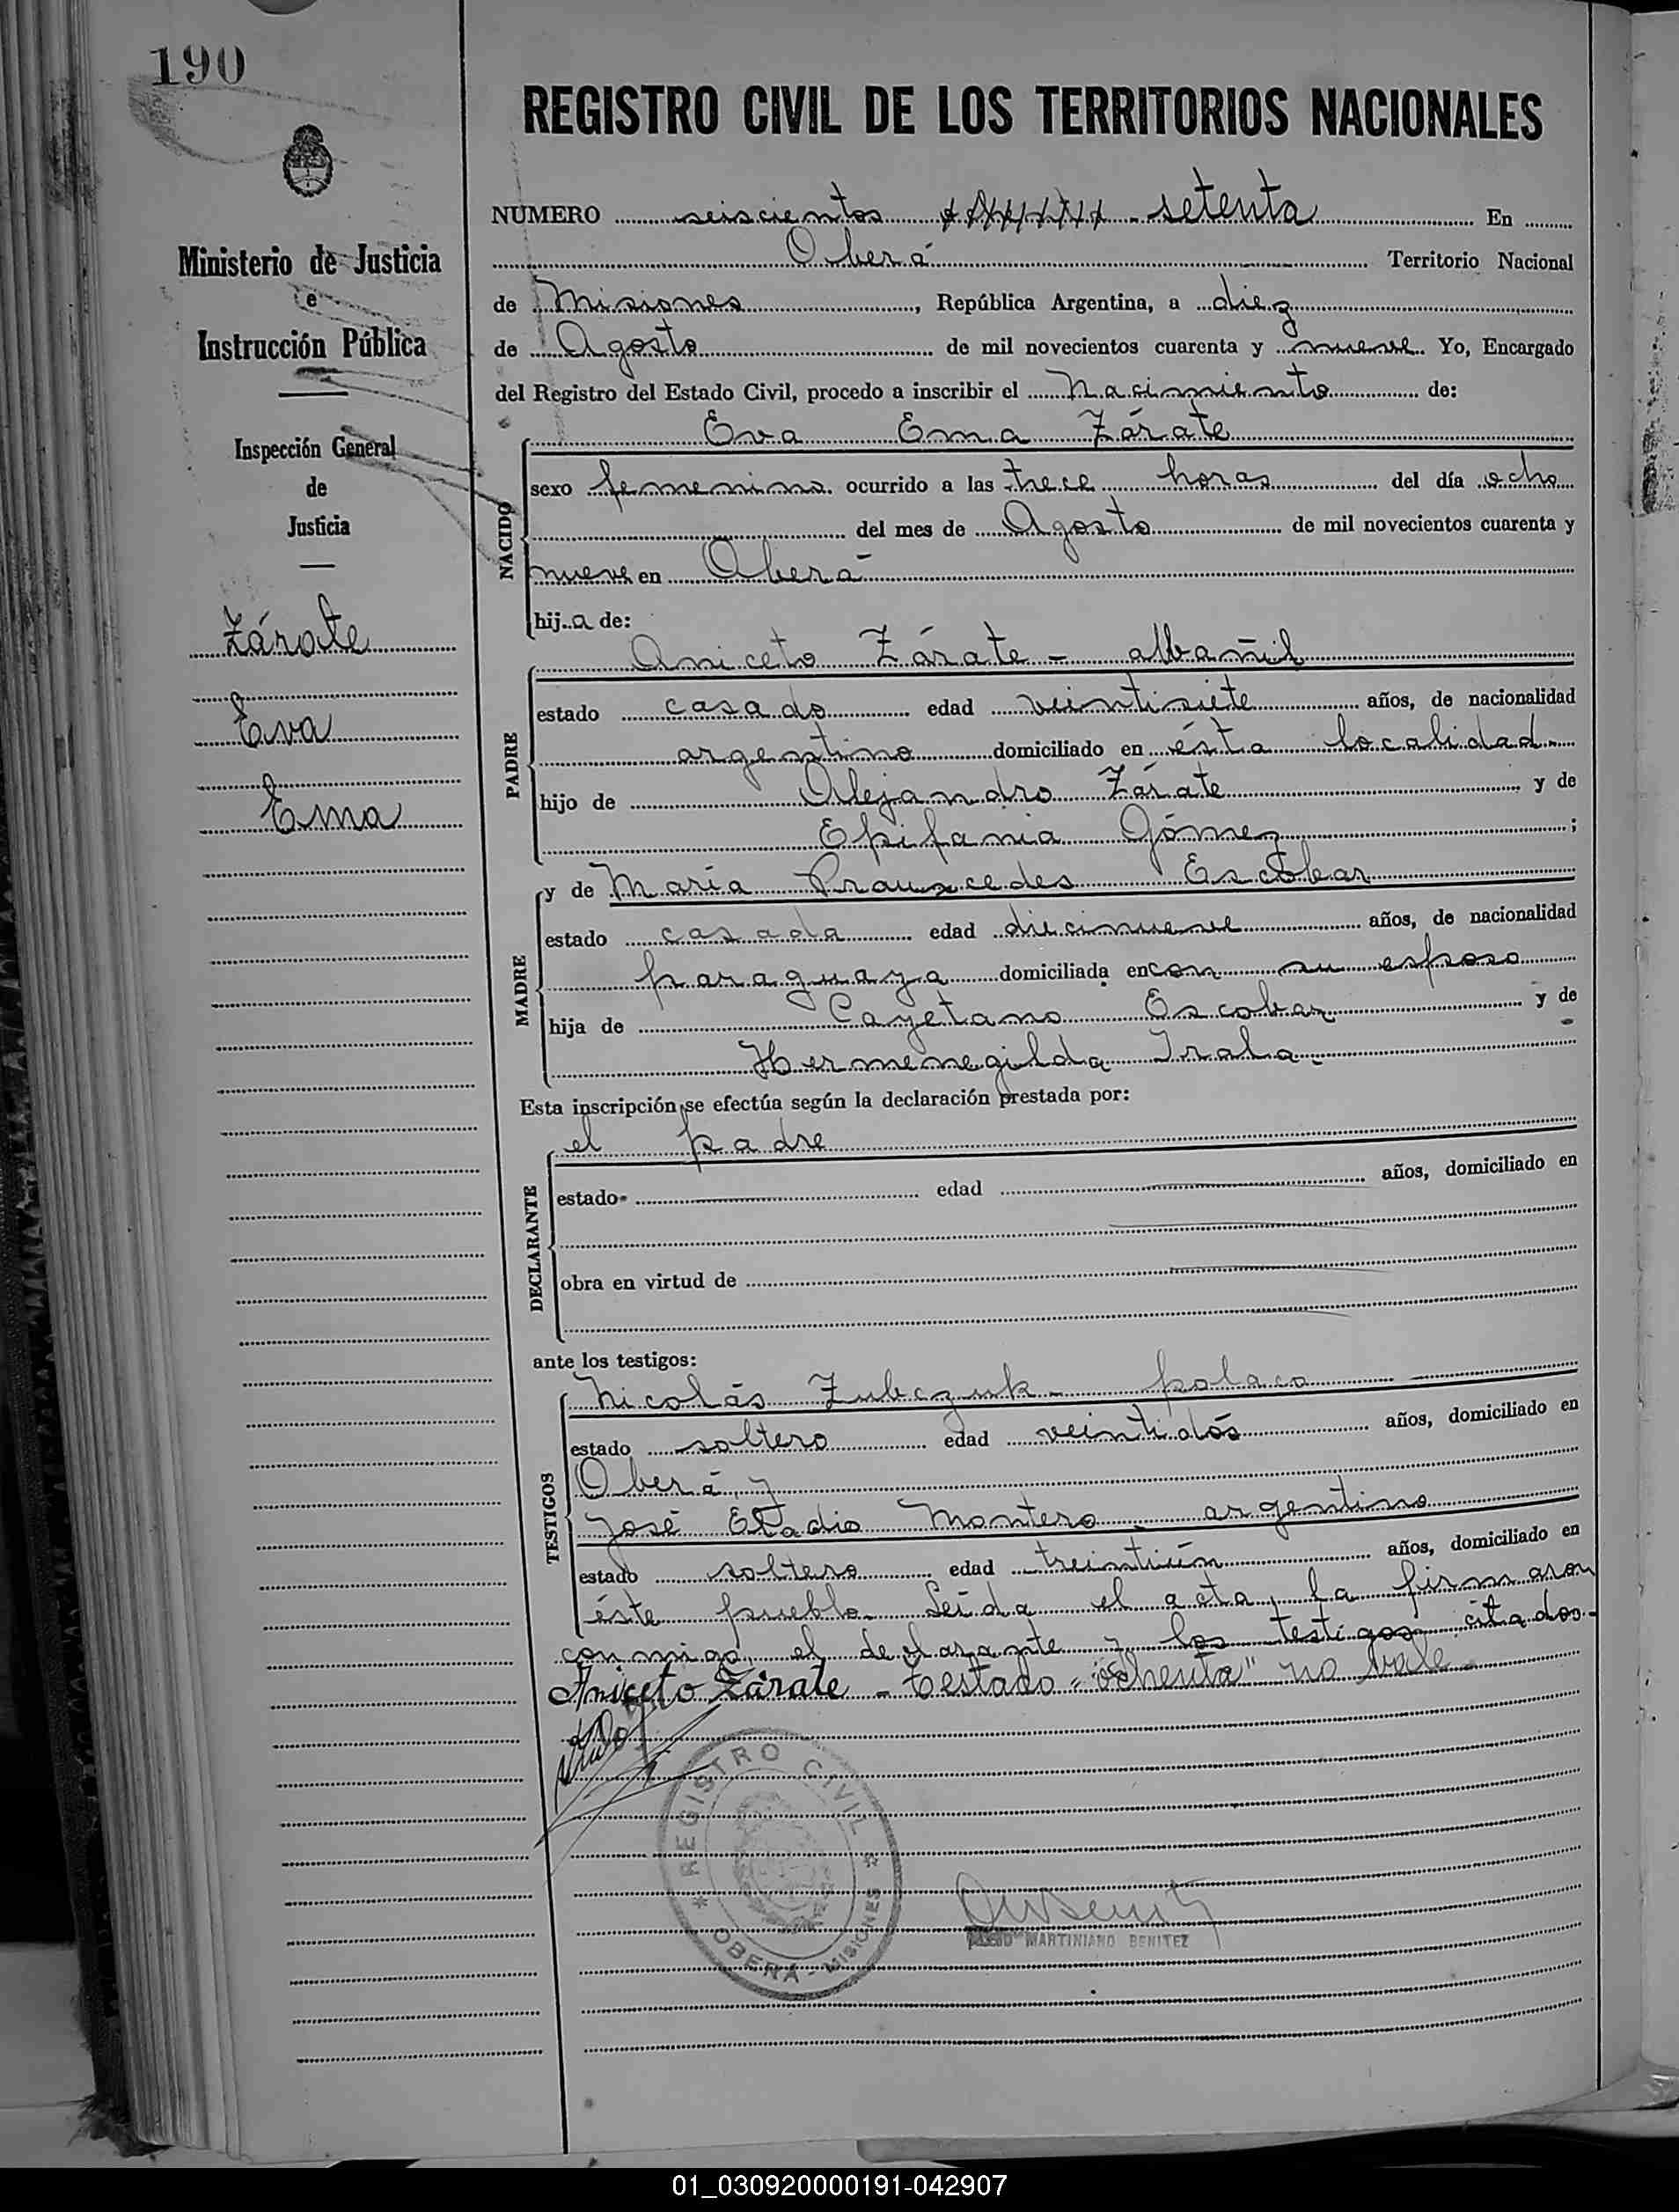 190
Ministerio de Justicia
e
Instrucción Pública
Inspección General
de
Justicia
Zárate
Eva
Ema
REGISTRO CIVIL DE LOS TERRITORIOS NACIONALES
NUMERO seiscientos setenta En
Oberá Territorio Nacional
de Misiones, República Argentina, a diez
de Agosto de mil novecientos cuarenta y nueve. Yo, Encargado
del Registro del Estado Civil, procedo a inscribir el Nacimiento de:
NACIDO
Eva Ema Zárate
sexo femenino ocurrido a las trece horas del día ocho
del mes de Agosto de mil novecientos cuarenta y
nueve en Oberá
hija de:
PADRE
Aniceto Zárate - albañil
estado casado edad veintisiete años, de nacionalidad
argentino domiciliado en ésta localidad
hijo de Alejandro Zárate y de
Epifania Gómez;
MADRE
y de María Praxcedes Escobar
estado casada edad diecinueve años, de nacionalidad
paraguaya domiciliada en con su esposo
hija de Cayetano Escobar y de
Hermenegilda Irala.
Esta inscripción se efectúa según la declaración prestada por:
DECLARANTE
el padre
estado edad años, domiciliado en
obra en virtud de
ante los testigos:
TESTIGOS
Nicolás Zubczuk - polaco
estado soltero edad veintidós años, domiciliado en
Oberá, y
José Eladio Montero - argentino
estado soltero edad treintiún años, domiciliado en
éste pueblo. Leída el acta, la firmaron
conmigo, el declarante y los testigos citados.-
Aniceto Zárate - Testado = "ochenta" no vale
REGISTRO CIVIL
OBERÁ - MISIONES
MARTINIANO BENITEZ
01_030920000191-042907